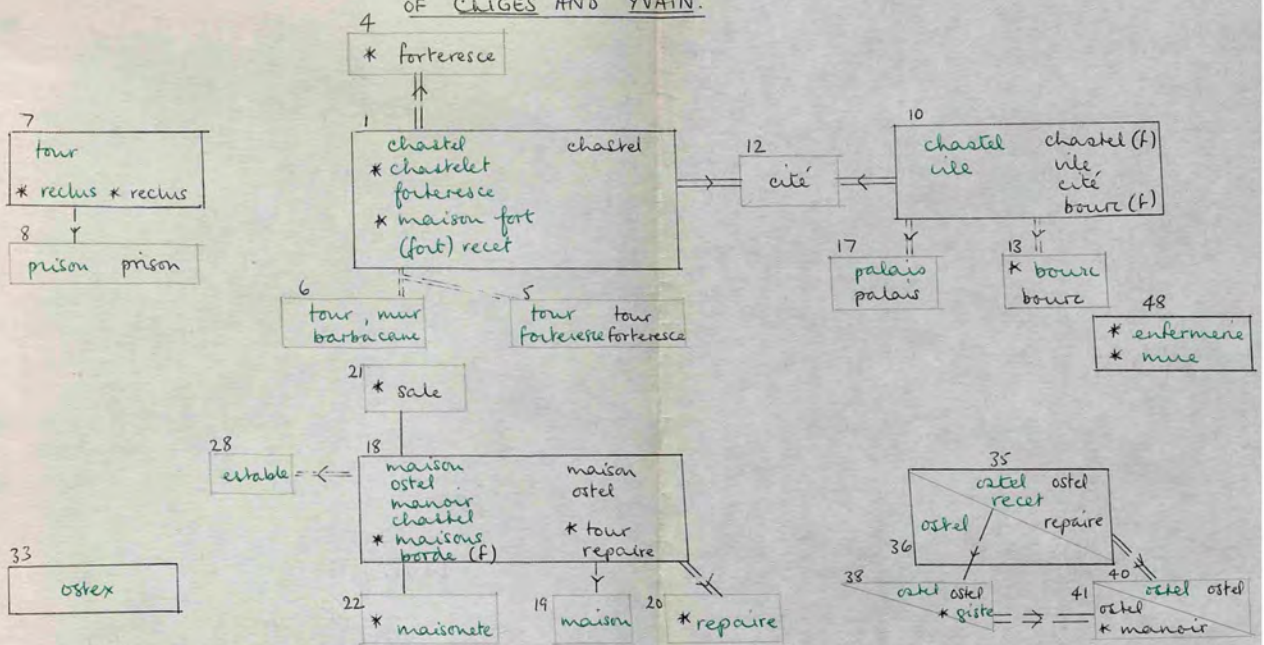 OF CLIGES AND YVAIN.
4
* forteresce
7
tour
* reclus * reclus
8
prison prison
1
chastel chastel
* chastelet
forteresce
* maison fort
(fort) recet
12
cité
10
chastel chastel (f)
vile vile
cité
bourc (f)
17
palais
palais
13
* bourc
bourc
48
* enfermerie
* mue
6
tour, mur
barbacane
5
tour tour
forteresce forteresce
21
* sale
28
estable
18
maison maison
ostel ostel
manoir
chastel * tour
* maisons repaire
borde (f)
33
ostex
22
* maisonete
19
maison
20
* repaire
35
ostel ostel
recet
ostel repaire
36
38
ostel ostel
* giste
40
ostel ostel
41
ostel
* manoir